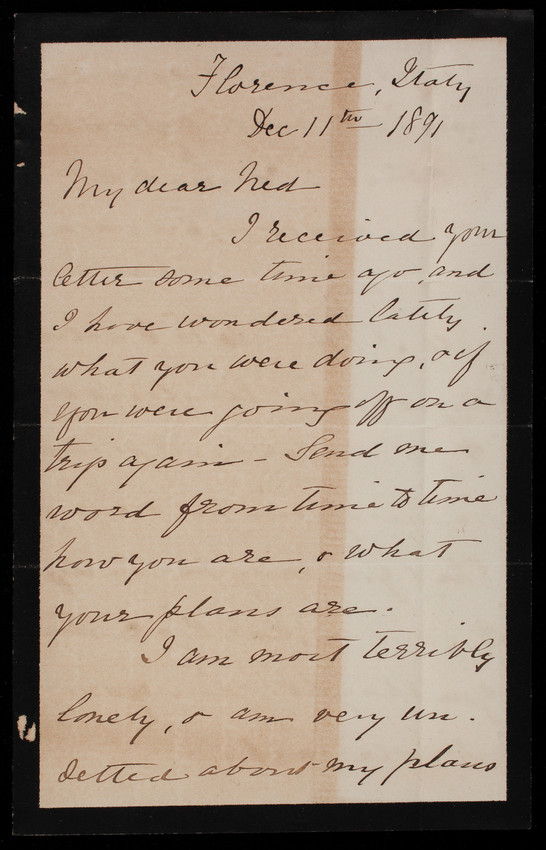 Florence, Italy
Dec 11th 1891
My dear Ned
I received your
letter some time ago, and
I have wondered lately
what you were doing, & if
you were going off on a
trip again - Send me
word from time to time
how you are, & what
your plans are.
I am most terribly
lonely, & am very un-
settled about my plans